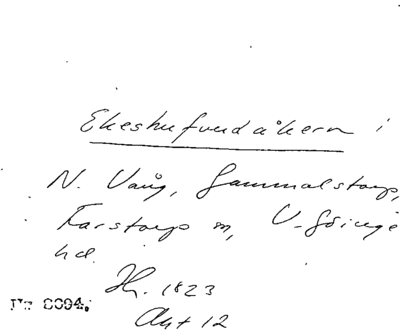 Ekeshufvudåkern i
N. Vång, Gammalstorp,
Farstorps sn, V-Göinge
hd.
Jb. 1823
Akt 12
Nr 8094.